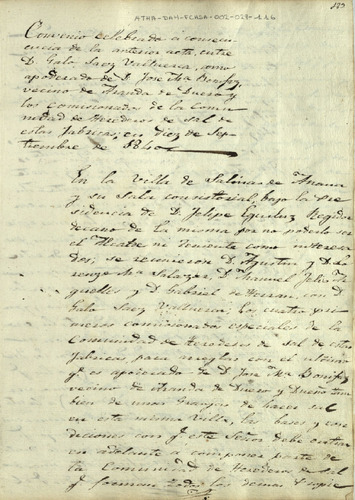 ATHA-DAH-FCASA-002-028-116
Convenio celebrado a consecu-
encia de la anterior acta, entre
D. Galo Saez Valturra, como
apoderado de D. Jose Ma Bonifaz,
vecino de Aranda de Duero y
los comisionados de la Comu-
nidad de Herederos de sal de
estas fabricas, en diez de Sep-
tiembre de 1840
En la Villa de Salinas de Añana
y su Sala consistorial, bajo la Pre-
sidencia de D. Felipe Eguiluz Regidor
decano de la misma por no poderlo ser
el Alcalde ni Teniente como interesa-
dos; se reunieron D. Agustin y D. Lo-
renzo Ma Salazar D. Manuel
y D. Gabriel con D.
Galo Saez Valturra; los cuatro pri-
meros comisionados especiales de la
Comunidad de Herederos de Sal de estas
fabricas para arreglar con el ultimo
q.e es apoderado de D. Jose Ma Bonifaz
vecino de Aranda de Duero y Dueño tam-
bien de unas Granjas de hacer sal
en esta misma Villa, las bases y con-
diciones con q.e este Señor debe entrar
en adelante a componer parte de
la Comunidad de Herederos de sal
q.e forman todos los demas